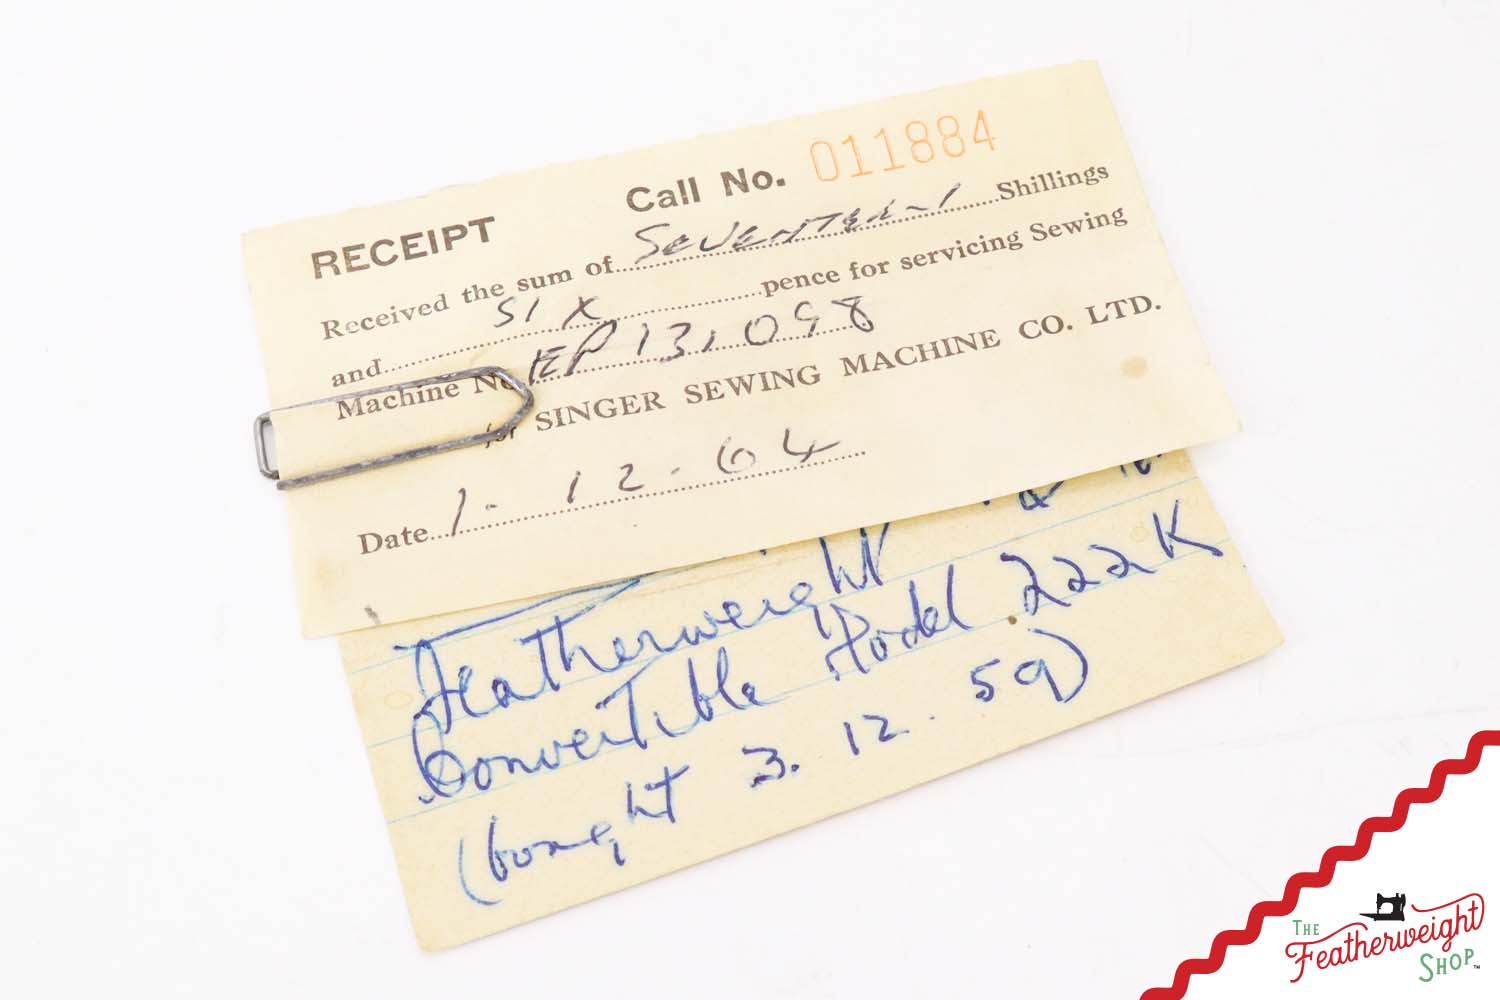 RECEIPT Call No. 011884
Received the sum of SEVENTEEN Shillings
and SIX pence for servicing Sewing
Machine No EP 131098
for SINGER SEWING MACHINE CO. LTD.
Date 1. 12. 64
Featherweight
Convertible Model 222K
(bought 3. 12. 59)
THE
Featherweight
SHOP™